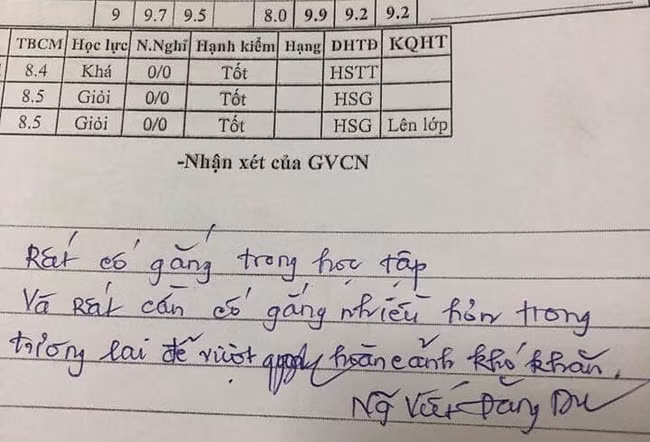 9 9.7 9.5 8.0 9.9 9.2 9.2
TBCM Học lực N.Nghỉ Hạnh kiểm Hạng DHTĐ KQHT
8.4 Khá 0/0 Tốt HSTT
8.5 Giỏi 0/0 Tốt HSG
8.5 Giỏi 0/0 Tốt HSG Lên lớp
-Nhận xét của GVCN
Rất cố gắng trong học tập
Và Rất cần cố gắng nhiều hơn trong
tương lai để vượt hoàn cảnh khó khăn.
Ng Viết Đăng Du